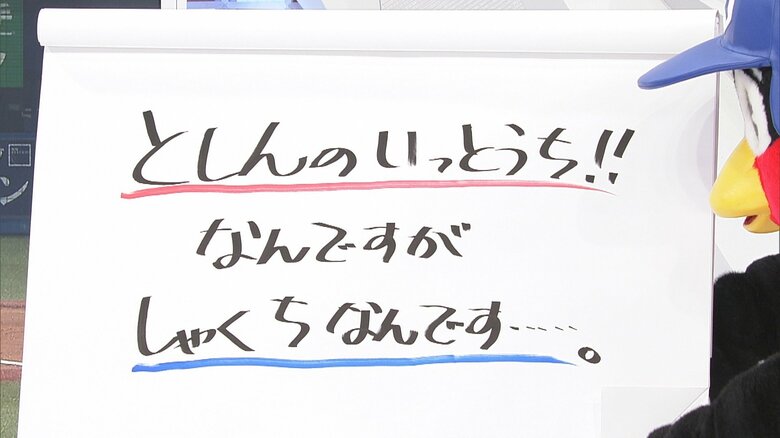 としんのいっとうち!!
なんですが
しゃくちなんです……。